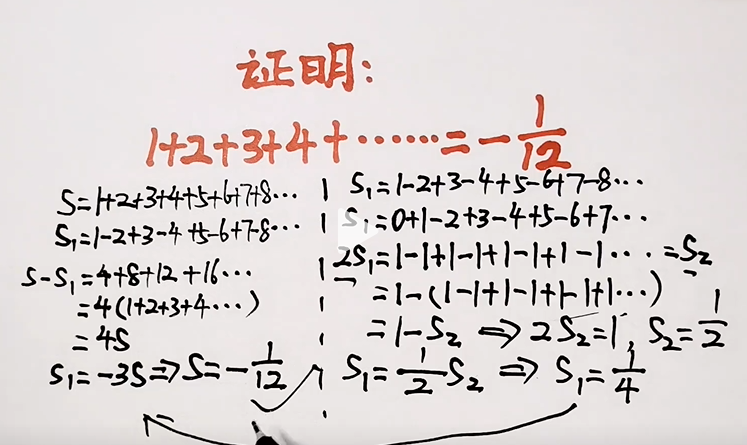 证明:
1+2+3+4+······=-1/12
S=1+2+3+4+5+6+7+8···
S₁=1-2+3-4+5-6+7-8···
S-S₁=4+8+12+16···
=4(1+2+3+4···)
=4S
S₁=-3S⇒S=-1/12
S₁=1-2+3-4+5-6+7-8···
S₁=0+1-2+3-4+5-6+7···
2S₁=1-1+1-1+1-1+1-1···=S₂
=1-(1-1+1-1+1-1+1···)
=1-S₂⇒2S₂=1, S₂=1/2
S₁=1/2S₂⇒S₁=1/4